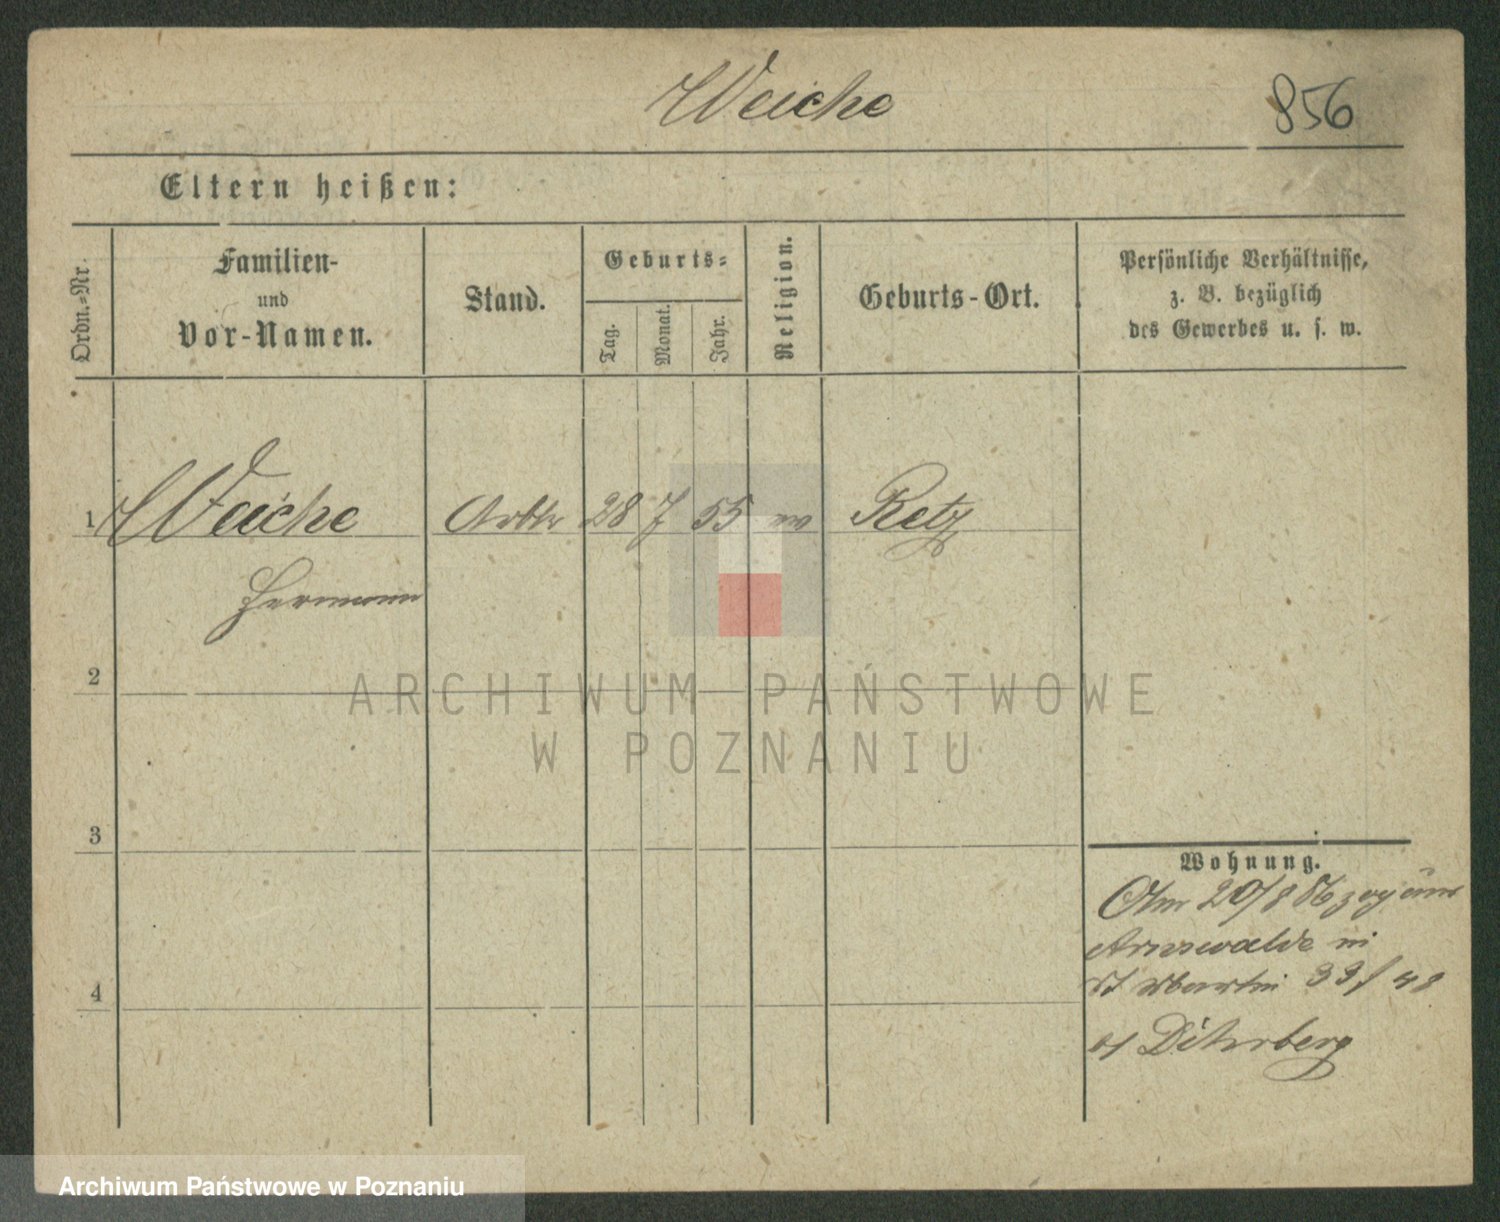 Weiche
856
Eltern heißen:
Ordn.-Nr.
Familien-
und
Vor-Namen.
Stand.
Geburts-
Tag.
Monat.
Jahr.
Religion.
Geburts-Ort.
Persönliche Verhältnisse,
z. B. bezüglich
des Gewerbes u. s. w.
1 Weiche Arbtr 28 7 55 ev Retz
Hermann
2
3
4
Wohnung.
Am 20/8 86 zog aus
Arnswalde in
St Martin 33/48
b/ Dihrberg
ARCHIWUM PAŃSTWOWE
W POZNANIU
Archiwum Państwowe w Poznaniu